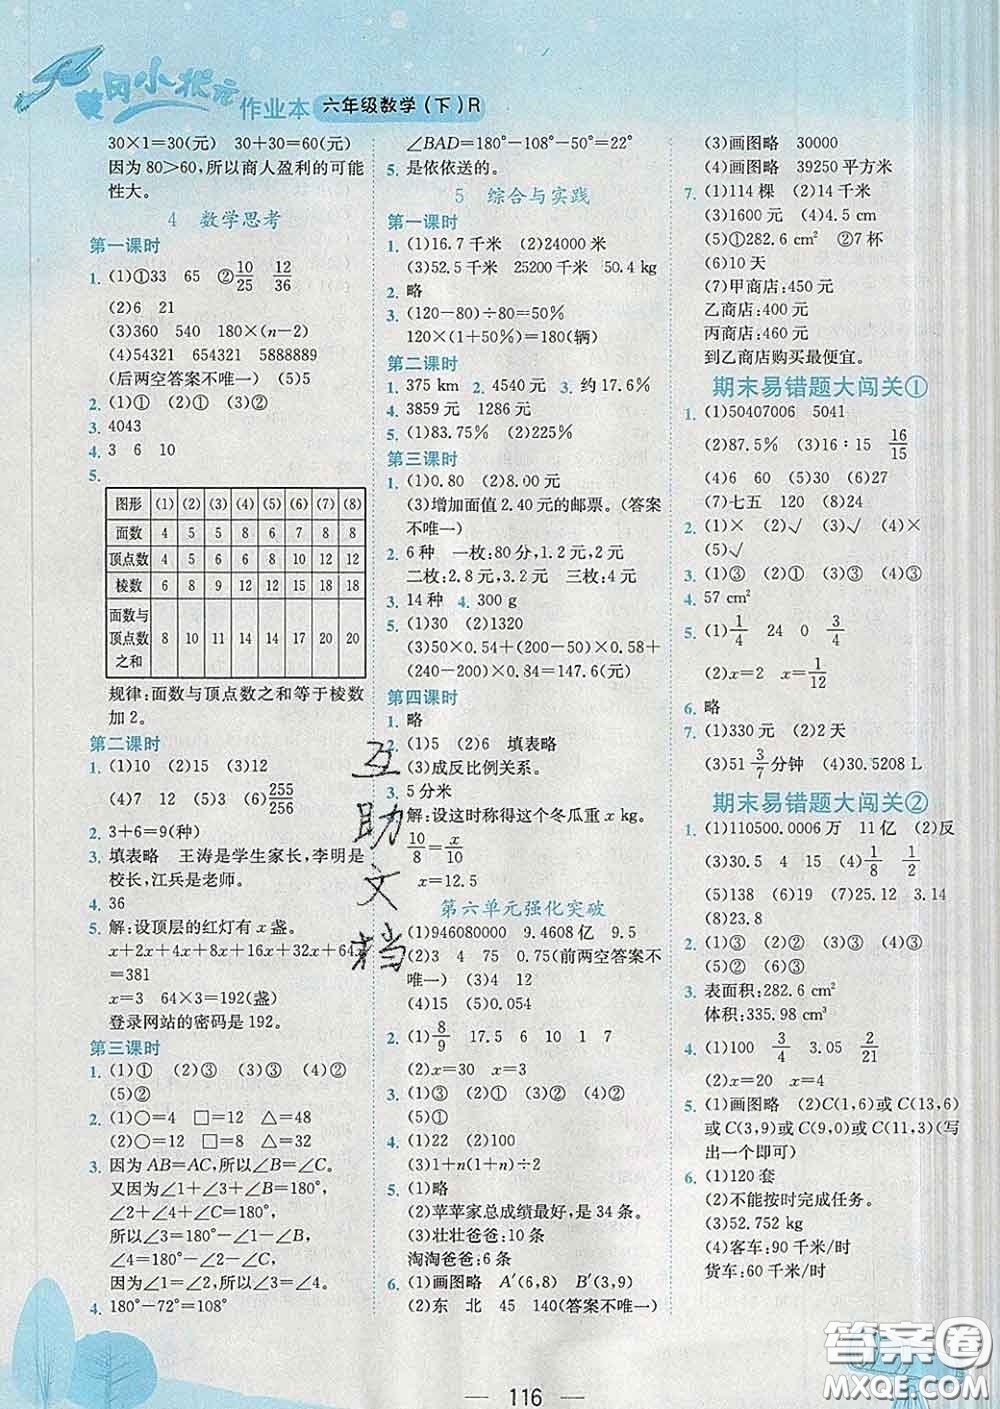 黄冈小状元 作业本 六年级数学(下)R
30×1=30(元)　30+30=60(元)
因为 80>60,所以商人盈利的可能
性大。
4　数学思考
第一课时
1. (1)①33　65　②10/25　12/36
(2)6　21
(3)360　540　180×(n-2)
(4)54321　554321　5888889
(后两空答案不唯一)　(5)5
2. (1)①　(2)②　(3)②
3. 4043
4. 3　6　10
5.
图形 (1) (2) (3) (4) (5) (6) (7) (8)
面数 4 5 5 8 6 7 8 8
顶点数 4 5 6 6 8 10 12 12
棱数 6 8 9 12 12 15 18 18
面数与
顶点数
之和 8 10 11 14 14 17 20 20
规律:面数与顶点数之和等于棱数
加2。
第二课时
1. (1)10　(2)15　(3)12
(4)7　12　(5)8　(6)255/256
2. 3+6=9(种)
3. 填表略　王涛是学生家长,李明是
校长,江兵是老师。
4. 36
5. 解:设顶层的红灯有 x 盏。
x+2x+4x+8x+16x+32x+64x
=381
x=3　64×3=192(盏)
登录网站的密码是 192。
第三课时
1. (1)①　(2)③　(3)③　(4)③
(5)②
2. (1)○=4　□=12　△=48
(2)○=12　□=8　△=32
3. 因为 AB=AC,所以∠B=∠C。
又因为∠1+∠3+∠B=180°,
∠2+∠4+∠C=180°,
所以∠3=180°-∠1-∠B,
∠4=180°-∠2-∠C,
因为∠1=∠2,所以∠3=∠4。
4. 180°-72°=108°
∠BAD=180°-108°-50°=22°
5. 是依依送的。
5　综合与实践
第一课时
1. (1)16.7 千米　(2)24000 米
(3)52.5 千米　25200 千米　50.4 kg
2. 略
3. (120-80)÷80=50%
120×(1+50%)=180(辆)
第二课时
1. 375 km　2. 4540 元　3. 约 17.6%
4. 3859 元　1286 元
5. (1)83.75%　(2)225%
第三课时
1. (1)0.80　(2)8.00
(3)增加面值 2.40 元的邮票。(答案
不唯一)
2. 6 种　一枚:80 分,1.2 元,2 元
二枚:2.8 元,3.2 元　三枚:4 元
3. 14 种　4. 300 g
5. (1)30　(2)1320
(3)50×0.54+(200-50)×0.64+
(240-200)×0.84=147.6(元)
第四课时
1. 略
2. (1)5　(2)6　填表略
(3)成反比例关系。
3. 5 分米
4. 解:设这时称得这个冬瓜重 x kg。
10/8=x/10
x=12.5
第六单元强化突破
1. (1)946080000　9.4608 亿　9.5
(2)3　4　75　0.75(前两空答案不
唯一)　(3)4　12
(4)15　(5)0.054
2. (1)8/9　17.5　6　10　1　7
(2)x=30　x=3
3. (1)③　(2)①　(3)②　(4)②
(5)①
4. (1)22　(2)100
(3)1+n(1+n)÷2
5. (1)略
(2)苹苹家总成绩最好,是 34 条。
(3)壮壮爸爸:10 条
淘淘爸爸:6 条
6. (1)画图略　A′(6,8)　B′(3,9)
(2)东　北　45　140(答案不唯一)
(3)画图略　30000
(4)画图略　39250 平方米
7. (1)114 棵　(2)14 千米
(3)1600 元　(4)4.5 cm
(5)①282.6 cm²　②7 杯
(6)10 天
(7)甲商店:450 元
乙商店:400 元
丙商店:460 元
到乙商店购买最便宜。
期末易错题大闯关①
1. (1)50407006　5041
(2)87.5%　(3)16∶15　16/15
(4)6　60　(5)30　(6)27
(7)七五　120　(8)24
2. (1)×　(2)√　(3)√　(4)×
(5)√
3. (1)③　(2)①　(3)②　(4)③
4. 57 cm²
5. (1)1/4　24　0　3/4
(2)x=2　x=1/12
6. 略
7. (1)330 元　(2)2 天
(3)51 3/7 分钟　(4)30.5208 L
期末易错题大闯关②
1. (1)110500.0006 万　11 亿　(2)反
(3)30.5　4　15　(4)1/8　1/2
(5)138　(6)19　(7)25.12　3.14
(8)23.8
2. (1)③　(2)②　(3)②　(4)①
(5)②　(6)③
3. 表面积:282.6 cm²
体积:335.98 cm³
4. (1)100　3/4　3.05　2/21
(2)x=20　x=4
5. (1)画图略　(2)C(1,6)或 C(13,6)
或 C(3,9)或 C(9,0)或 C(11,3)(写
出一个即可)
6. (1)120 套
(2)不能按时完成任务。
(3)52.752 kg
(4)客车:90 千米/时
货车:60 千米/时
互助文档
116
答案圈
MXQE.COM